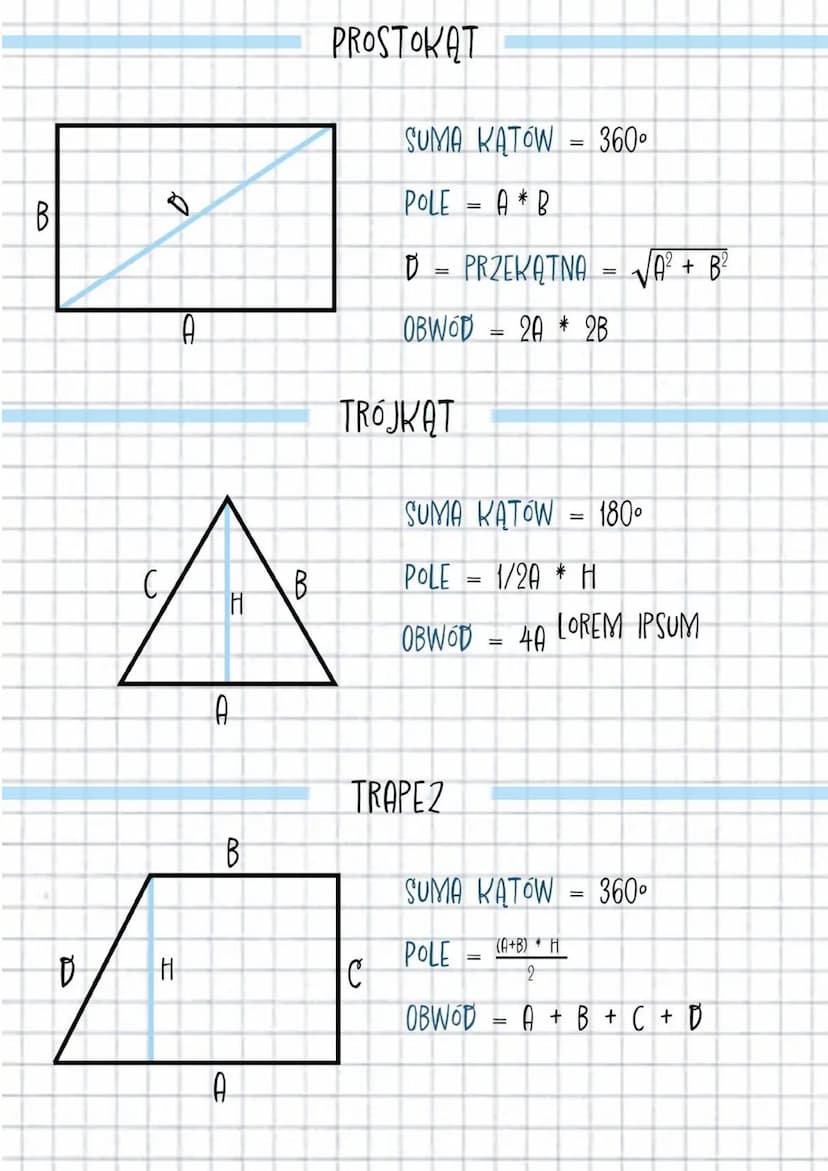 PROSTOKĄT
SUMA KĄTÓW = 360°
B
D
POLE = A * B
D = PRZEKĄTNA = √A² + B²
A
OBWÓD = 2A * 2B
TRÓJKĄT
SUMA KĄTÓW = 180°
C
H
B
POLE = 1/2A * H
OBWÓD = 4A LOREM IPSUM
A
TRAPEZ
B
SUMA KĄTÓW = 360°
D
H
C
POLE = (A+B) * H
2
OBWÓD = A + B + C + D
A